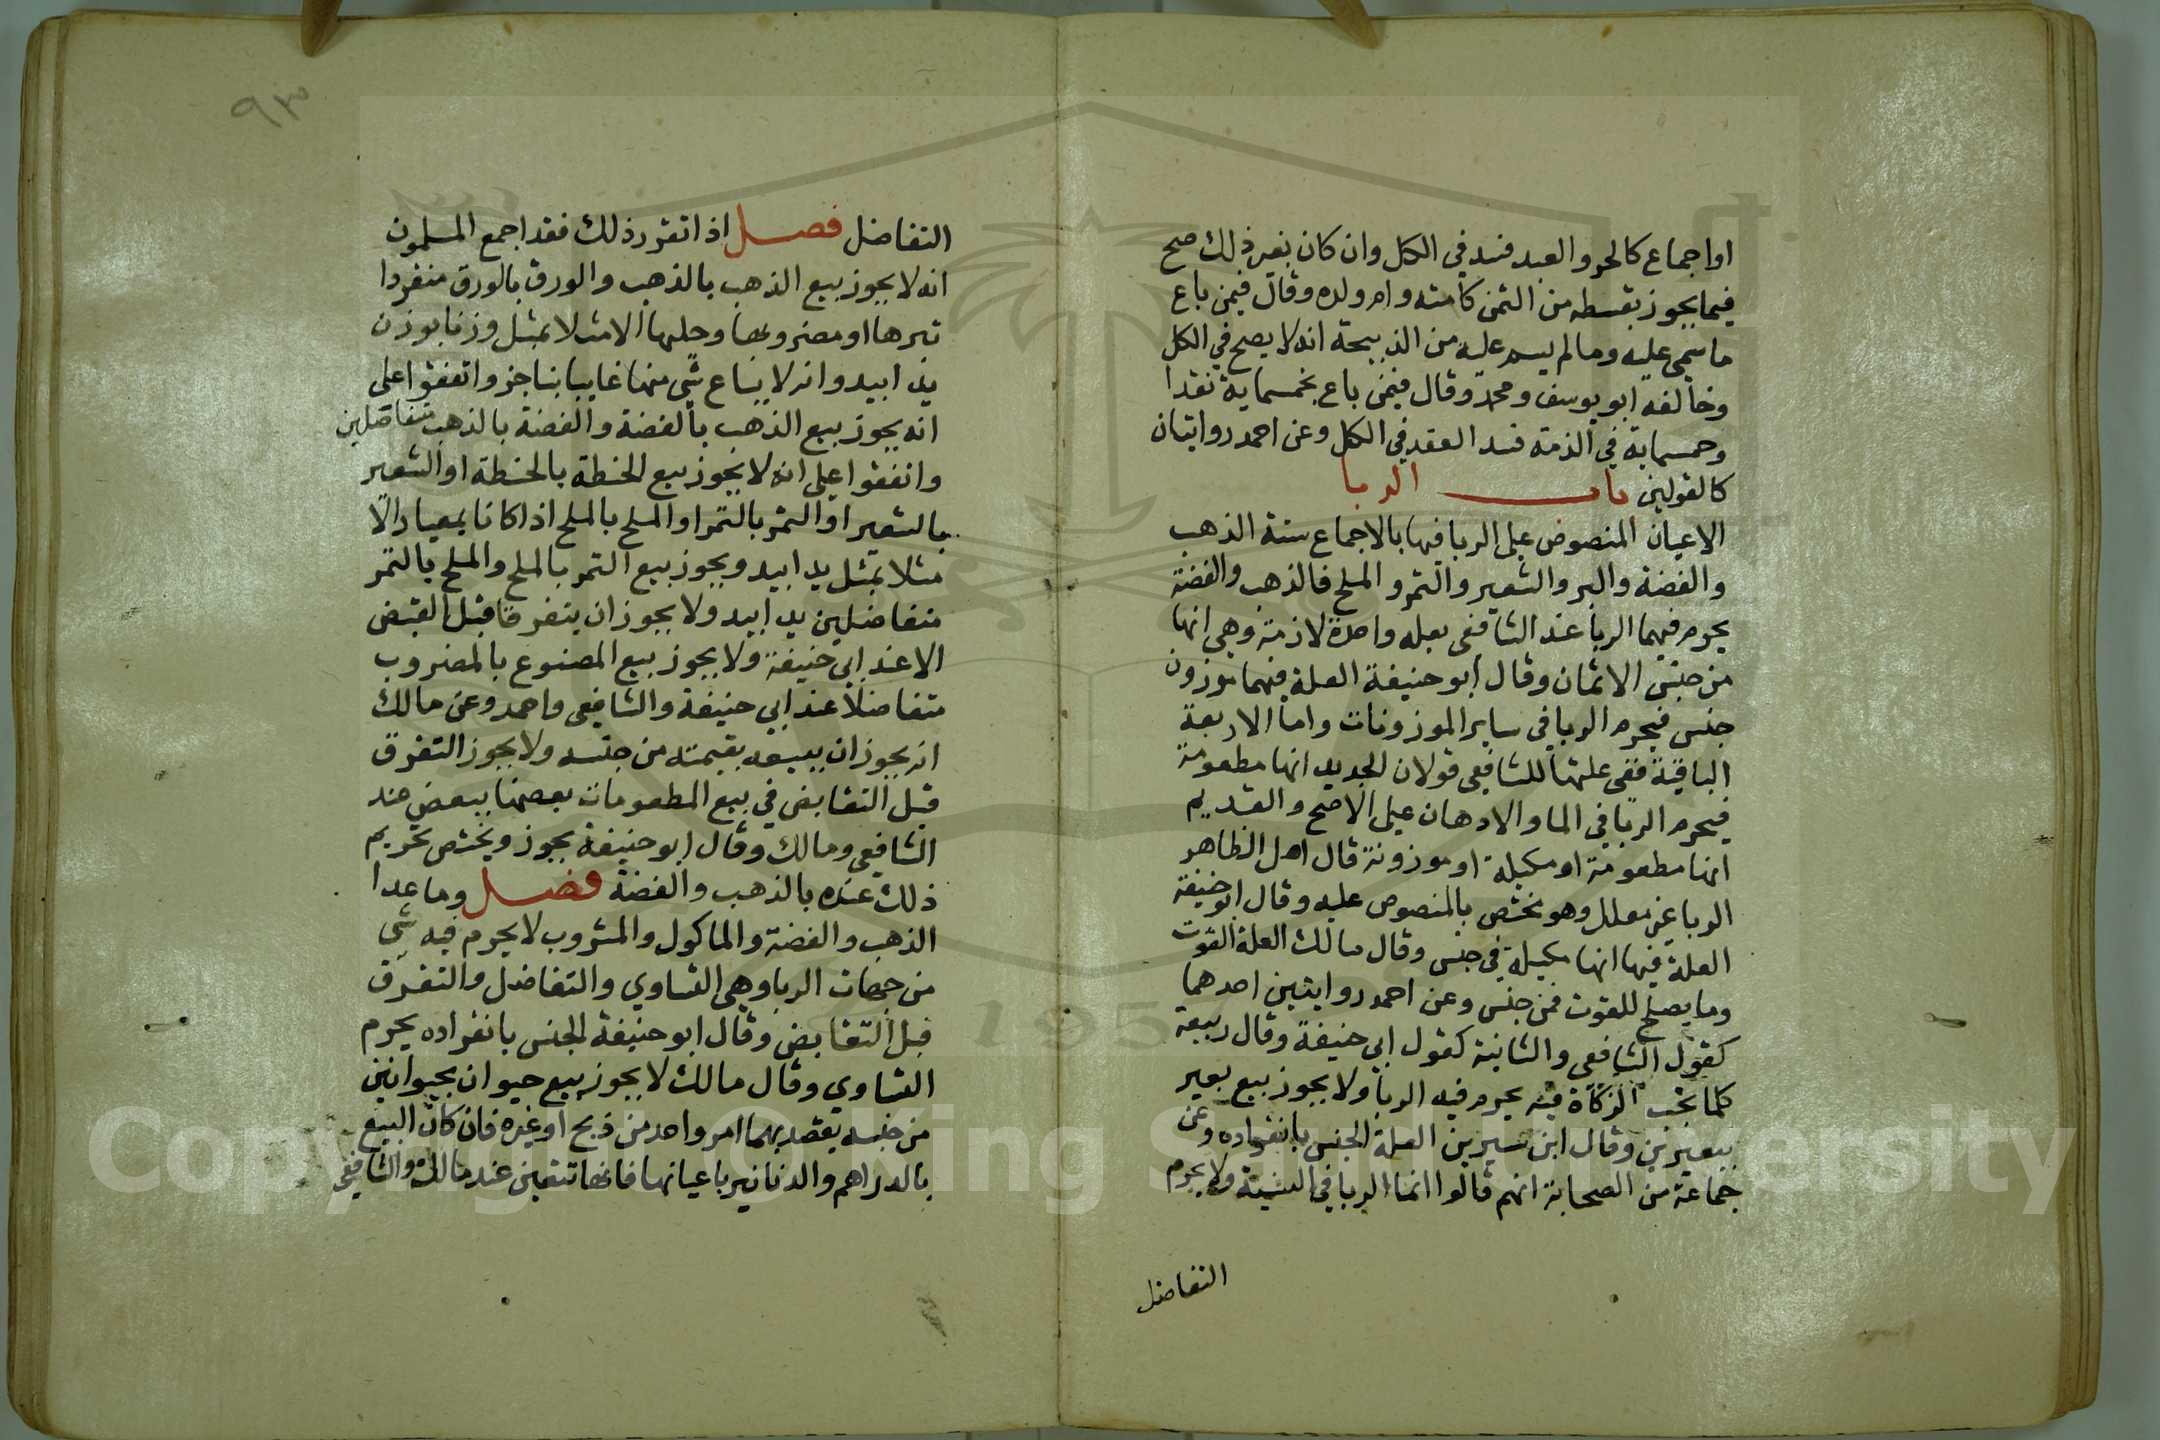 او اجماع كالحر والعبد فسد في الكل وان كان بغير ذلك صح
فيما يجوز بقسطه من الثمن كأمته وام ولده وقال فيمن باع
ما سمي عليه وما لم يسم عليه من الذبيحة انه لا يصح في الكل
وخالفه ابو يوسف ومحمد وقال فيمن باع بخمسماية نقدا
وخمسماية في الذمة فسد العقد في الكل وعن احمد روايتان
كالقولين باب الربا
الاعيان المنصوص على الربا فيها بالاجماع ستة الذهب
والفضة والبر والشعير والتمر والملح فالذهب والفضة
يحرم فيهما الربا عند الشافعي بعلة واحدة لازمة وهي انها
من جنس الاثمان وقال ابو حنيفة العلة فيهما موزون
جنس فيحرم الربا في ساير الموزونات واما الاربعة
الباقية ففي علتها للشافعي قولان الجديد انها مطعومة
فيحرم الربا في الما والادهان على الاصح والقديم
انها مطعومة او مكيلة او موزونة قال اهل الظاهر
الربا غير معلل وهو مختص بالمنصوص عليه وقال ابو حنيفة
العلة فيها انها مكيلة في جنس وقال مالك العلة القوت
وما يصلح للقوت من جنس وعن احمد روايتين احدهما
كقول الشافعي والثانية كقول ابي حنيفة وقال ربيعة
كلما تجب الزكاة فيه يحرم فيه الربا ولا يجوز بيع بعير
ببعيرين وقال ابن سيرين العلة الجنس بانفراده وعن
جماعة من الصحابة انهم قالوا انما الربا في النسية ولا يحرم
التفاضل
٩٣
التفاضل فصل اذا تقرر ذلك فقد اجمع المسلمون
انه لا يجوز بيع الذهب بالذهب والورق بالورق منفردا
تبرها او مضروبها وحليها الا مثلا بمثل وزنا بوزن
يدا بيد وانه لا يباع شي منها غايبا بناجز واتفقوا على
انه يجوز بيع الذهب بالفضة والفضة بالذهب متفاضلين
واتفقوا على انه لا يجوز بيع الحنطة بالحنطة او الشعير
بالشعير او التمر بالتمر او الملح بالملح اذا كانا بمعيار الا
مثلا بمثل يدا بيد ويجوز بيع التمر بالملح والملح بالتمر
متفاضلين يدا بيد ولا يجوز ان يتفرقا قبل القبض
الا عند ابي حنيفة ولا يجوز بيع المصنوع بالمضروب
متفاضلا عند ابي حنيفة والشافعي واحمد وعن مالك
انه يجوز ان يبيعه بقيمته من جنسه ولا يجوز التفرق
قبل التقابض في بيع المطعومات بعضها ببعض عند
الشافعي ومالك وقال ابو حنيفة يجوز ويختص تحريم
ذلك عنده بالذهب والفضة فصل وما عدا
الذهب والفضة والماكول والمشروب لا يحرم فيه شي
من جهات الربا وهي التساوي والتفاضل والتفرق
قبل التقابض وقال ابو حنيفة الجنس بانفراده يحرم
التساوي وقال مالك لا يجوز بيع حيوان بحيوانين
من جنسه يقصد بهما امر واحد من ذبح او غيره فان كان البيع
بالدراهم والدنانير باعيانها فانها تتعين عند مالك والشافعي
Copyright © King Saud University
195